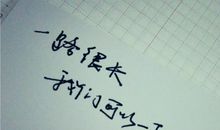 一路很长
我们可以一